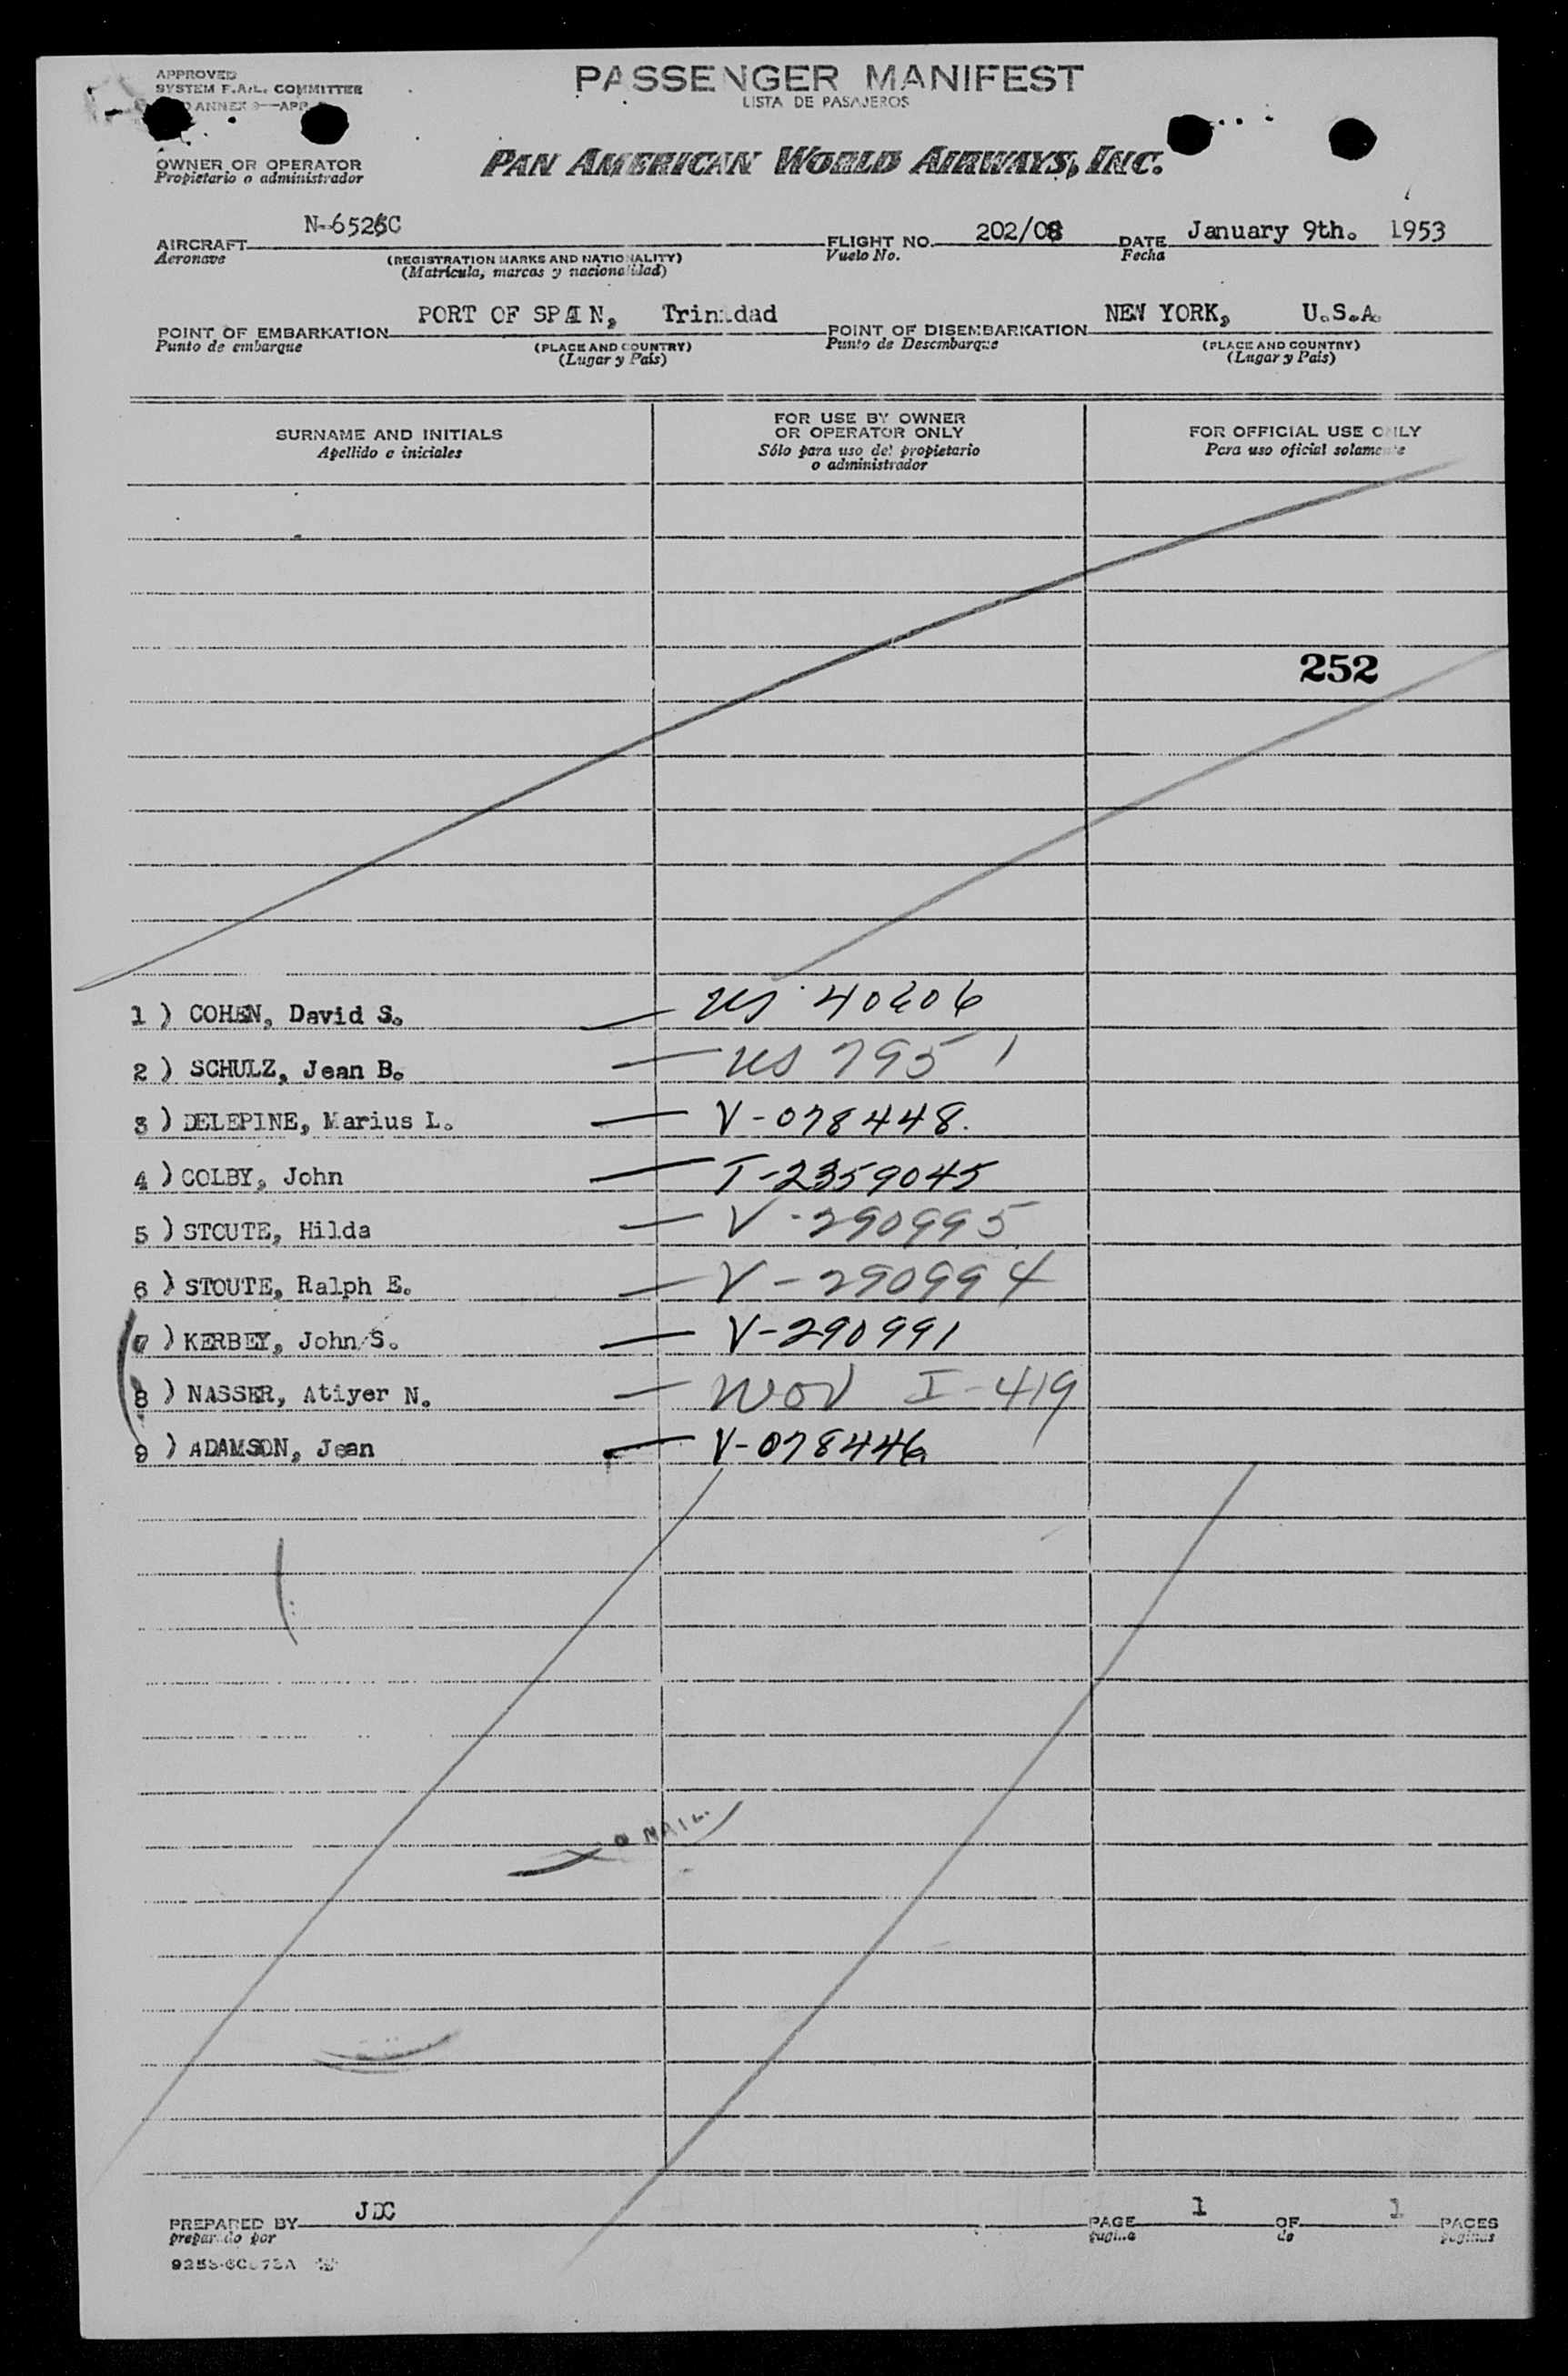 APPROVED
SYSTEM F.A.L. COMMITTEE
ANNEX 9—APP
PASSENGER MANIFEST
LISTA DE PASAJEROS
OWNER OR OPERATOR
Propietario o administrador
PAN AMERICAN WORLD AIRWAYS, INC.
AIRCRAFT N-6526C FLIGHT NO. 202/08 DATE January 9th. 1953
Aeronave (REGISTRATION MARKS AND NATIONALITY) Vuelo No. Fecha
(Matrícula, marcas y nacionalidad)
POINT OF EMBARKATION PORT OF SPAIN, Trinidad POINT OF DISEMBARKATION NEW YORK, U.S.A.
Punto de embarque (PLACE AND COUNTRY) Punto de Desembarque (PLACE AND COUNTRY)
(Lugar y País) (Lugar y País)
SURNAME AND INITIALS
Apellido e iniciales
FOR USE BY OWNER
OR OPERATOR ONLY
Sólo para uso del propietario
o administrador
FOR OFFICIAL USE ONLY
Para uso oficial solamente
252
1 ) COHEN, David S. — US 40606
2 ) SCHULZ, Jean B. — US 795 1
3 ) DELEPINE, Marius L. — V-078448.
4 ) COLBY, John — T-2359045
5 ) STOUTE, Hilda — V-290995
6 ) STOUTE, Ralph E. — V-290994
7 ) KERBEY, John S. — V-290991
8 ) NASSER, Atiyer N. — WOV I-419
9 ) ADAMSON, Jean — V-078446
MAIL
PREPARED BY JDC PAGE 1 OF 1 PAGES
preparado por página de páginas